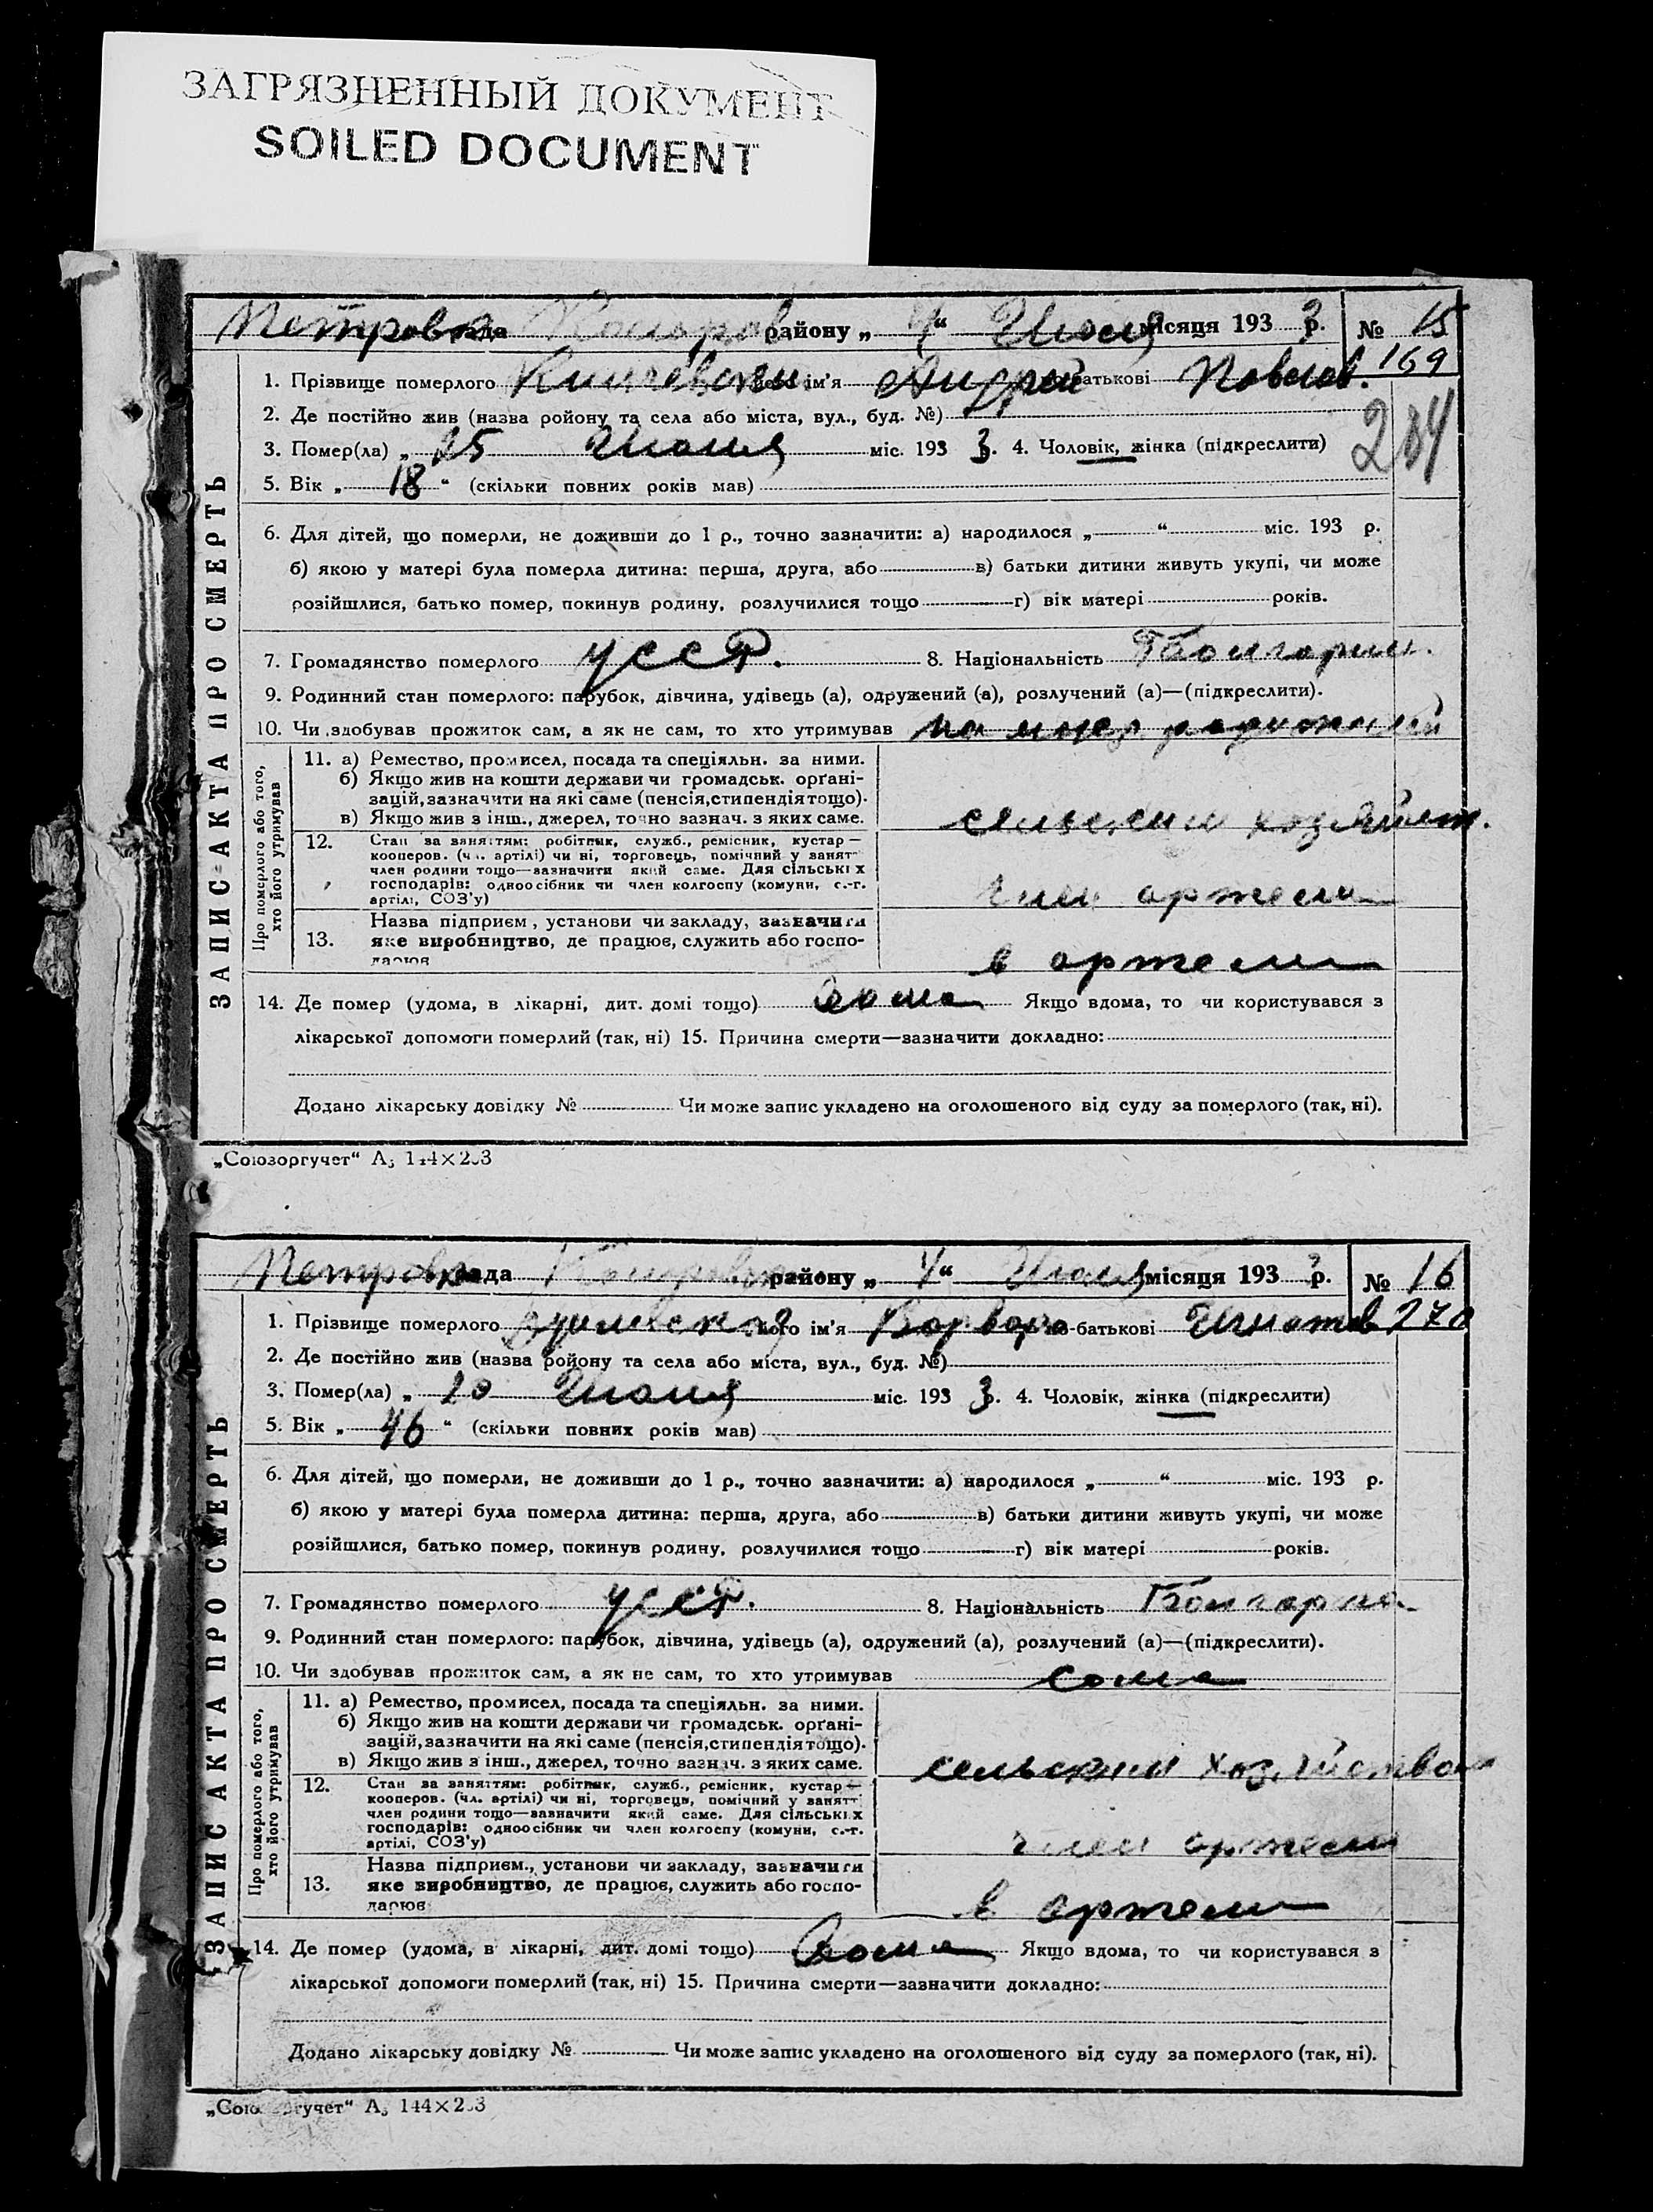 ЗАГРЯЗНЕННЫЙ ДОКУМЕНТ
SOILED DOCUMENT
Петровка району „ 4 “ Июля місяця 193 3 р. № 15
169
1. Прізвище померлого ім'я Андрей батькові Павлов.
2. Де постійно жив (назва ройону та села або міста, вул., буд. №)
284
3. Помер(ла) „ 25 Июня міс. 193 3. 4. Чоловік, жінка (підкреслити)
5. Вік „ 18 “ (скільки повних років мав)
6. Для дітей, що померли, не доживши до 1 р., точно зазначити: а) народилося „ “ міс. 193 р.
б) якою у матері була померла дитина: перша, друга, або в) батьки дитини живуть укупі, чи може
розійшлися, батько помер, покинув родину, розлучилися тощо г) вік матері років.
7. Громадянство померлого УССР. 8. Національність Болгарин.
9. Родинний стан померлого: парубок, дівчина, удівець (а), одружений (а), розлучений (а)—(підкреслити).
10. Чи здобував прожиток сам, а як не сам, то хто утримував на ижд родителей
ЗАПИС АКТА ПРО СМЕРТЬ
Про померлого або того, хто його утримував
11. а) Ремество, промисел, посада та спеціяльн. за ними.
б) Якщо жив на кошти держави чи громадськ. орґані-
зацій, зазначити на які саме (пенсія, стипендія тощо).
в) Якщо жив з інш., джерел, точно зазнач. з яких саме.
сельским хозяйст.
12. Стан за заняттям: робітник, служб., ремісник, кустар—
кооперов. (чл. артілі) чи ні, торговець, помічний у занятт
член родини тощо—зазначити який саме. Для сільських
господарів: одноосібник чи член колгоспу (комуни, с.-г.
артілі, СОЗ'у)
член артели
13. Назва підприєм., установи чи закладу, зазначити
яке виробництво, де працює, служить або госпо-
дарює
в артели
14. Де помер (удома, в лікарні, дит. домі тощо) дома Якщо вдома, то чи користувався з
лікарської допомоги померлий (так, ні) 15. Причина смерти—зазначити докладно:
Додано лікарську довідку № Чи може запис укладено на оголошеного від суду за померлого (так, ні).
„Союзоргучет“ А₅ 144×203
Петровка рада району „ 4 “ Июля місяця 193 3 р. № 16
270
1. Прізвище померлого його ім'я Варвара по-батькові Игнатов
2. Де постійно жив (назва ройону та села або міста, вул., буд. №)
3. Помер(ла) „ 20 Июня міс. 193 3. 4. Чоловік, жінка (підкреслити)
5. Вік „ 46 “ (скільки повних років мав)
6. Для дітей, що померли, не доживши до 1 р., точно зазначити: а) народилося „ “ міс. 193 р.
б) якою у матері була померла дитина: перша, друга, або в) батьки дитини живуть укупі, чи може
розійшлися, батько помер, покинув родину, розлучилися тощо г) вік матері років.
7. Громадянство померлого УССР. 8. Національність Болгарка
9. Родинний стан померлого: парубок, дівчина, удівець (а), одружений (а), розлучений (а)—(підкреслити).
10. Чи здобував прожиток сам, а як не сам, то хто утримував сама
ЗАПИС АКТА ПРО СМЕРТЬ
Про померлого або того, хто його утримував
11. а) Ремество, промисел, посада та спеціяльн. за ними.
б) Якщо жив на кошти держави чи громадськ. орґані-
зацій, зазначити на які саме (пенсія, стипендія тощо).
в) Якщо жив з інш., джерел, точно зазнач. з яких саме.
сельским хозяйством
12. Стан за заняттям: робітник, служб., ремісник, кустар—
кооперов. (чл. артілі) чи ні, торговець, помічний у занятт
член родини тощо—зазначити який саме. Для сільських
господарів: одноосібник чи член колгоспу (комуни, с.-г.
артілі, СОЗ'у)
член артели
13. Назва підприєм., установи чи закладу, зазначити
яке виробництво, де працює, служить або госпо-
дарює
в артели
14. Де помер (удома, в лікарні, дит. домі тощо) Дома Якщо вдома, то чи користувався з
лікарської допомоги померлий (так, ні) 15. Причина смерти—зазначити докладно:
Додано лікарську довідку № Чи може запис укладено на оголошеного від суду за померлого (так, ні).
„Союзоргучет“ А₅ 144×203